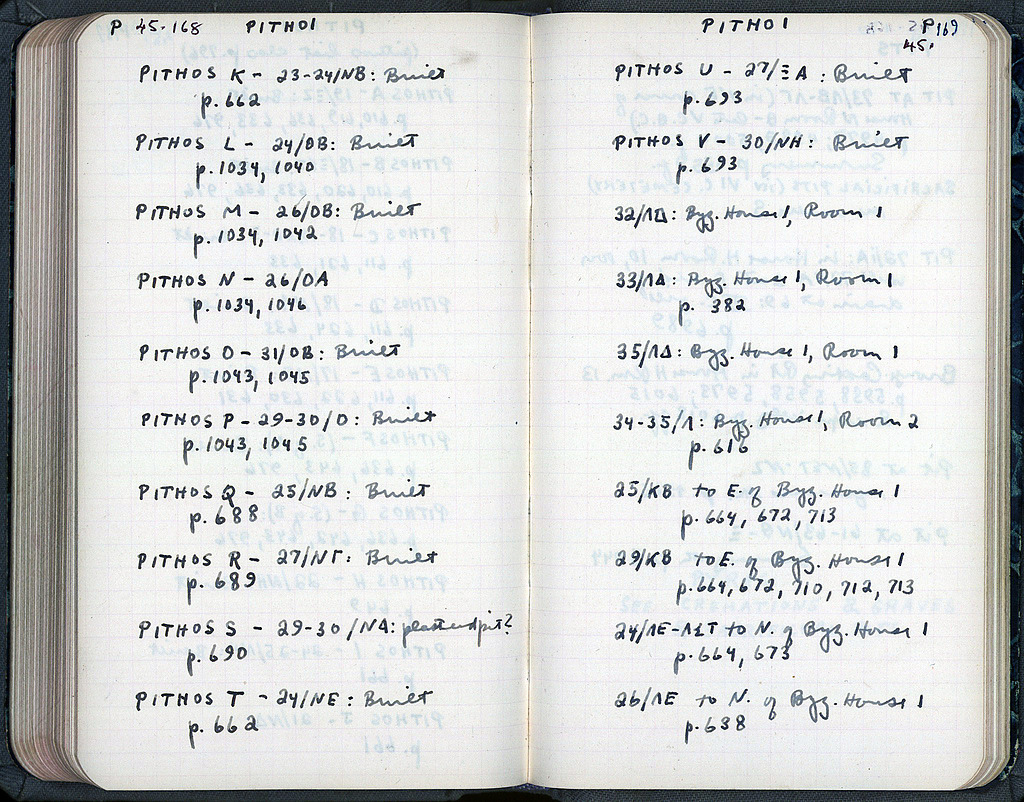 P 45-168 PITHOI
PITHOS K - 23-24/NB: Built
p. 662
PITHOS L - 24/OB: Built
p. 1034, 1040
PITHOS M - 26/OB: Built
p. 1034, 1042
PITHOS N - 26/OA
p. 1034, 1046
PITHOS O - 31/OB: Built
p. 1043, 1045
PITHOS P - 29-30/O: Built
p. 1043, 1045
PITHOS Q - 25/NB: Built
p. 688
PITHOS R - 27/NΓ: Built
p. 689
PITHOS S - 29-30/NA: plastered pit?
p. 690
PITHOS T - 24/NE: Built
p. 662
PITHOI P 169
45.
PITHOS U - 27/ΞA : Built
p. 693
PITHOS V - 30/NH: Built
p. 693
32/ΛΔ: Byz. House 1, Room 1
33/ΛΔ: Byz. House 1, Room 1
p. 382
35/ΛΔ: Byz. House 1, Room 1
34-35/Λ: Byz. House 1, Room 2
p. 616
25/KB to E. of Byz. House 1
p. 664, 672, 713
29/KB to E. of Byz. House 1
p. 664, 672, 710, 712, 713
24/ΛE-ΛΣT to N. of Byz. House 1
p. 664, 673
26/ΛE to N. of Byz. House 1
p. 638